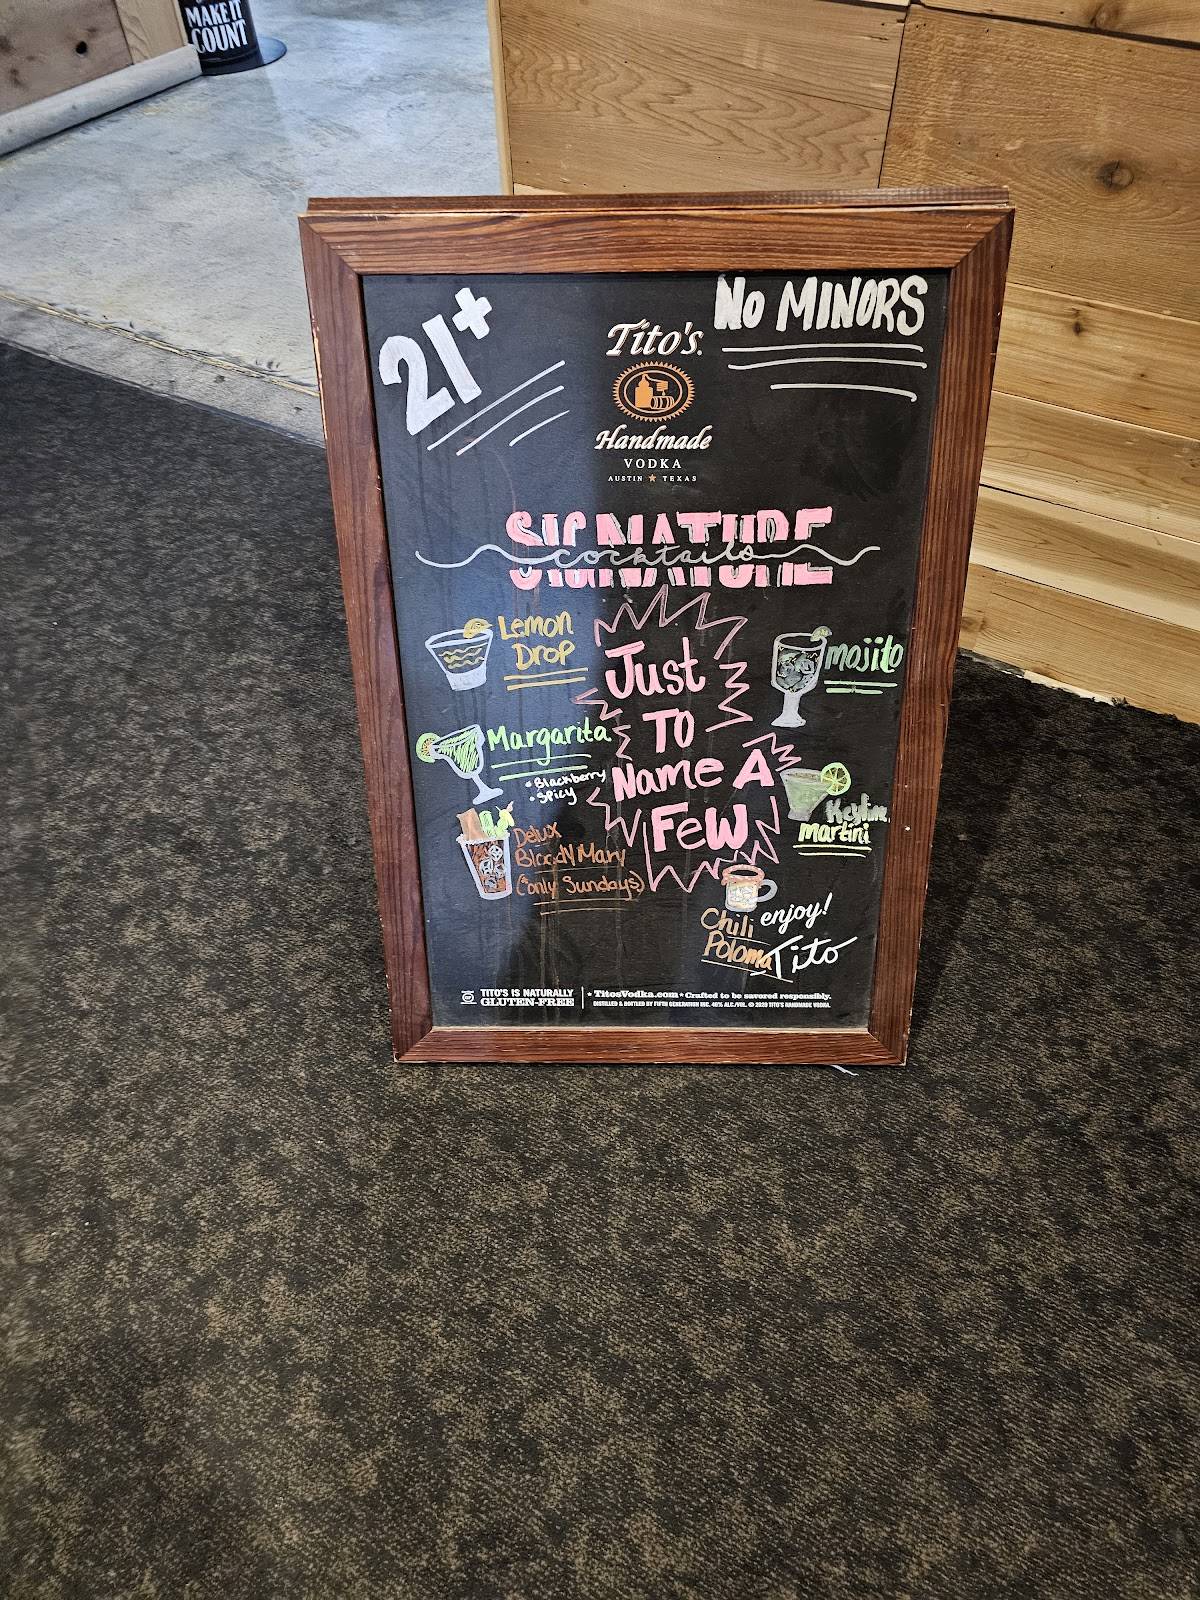 MAKE IT
COUNT
21+
NO MINORS
Tito's
Handmade
VODKA
AUSTIN ★ TEXAS
SIGNATURE
cocktails
Lemon
Drop
Just
TO
Name A
Few
mojito
Margarita
• Blackberry
• Spicy
Keylime
martini
Delux
Bloody Mary
(*only Sundays)
Chili
Poloma
enjoy!
Tito
TITO'S IS NATURALLY
GLUTEN-FREE
★ TitosVodka.com ★ Crafted to be savored responsibly.
DISTILLED & BOTTLED BY FIFTH GENERATION INC. 40% ALC./VOL. © 2020 TITO'S HANDMADE VODKA.